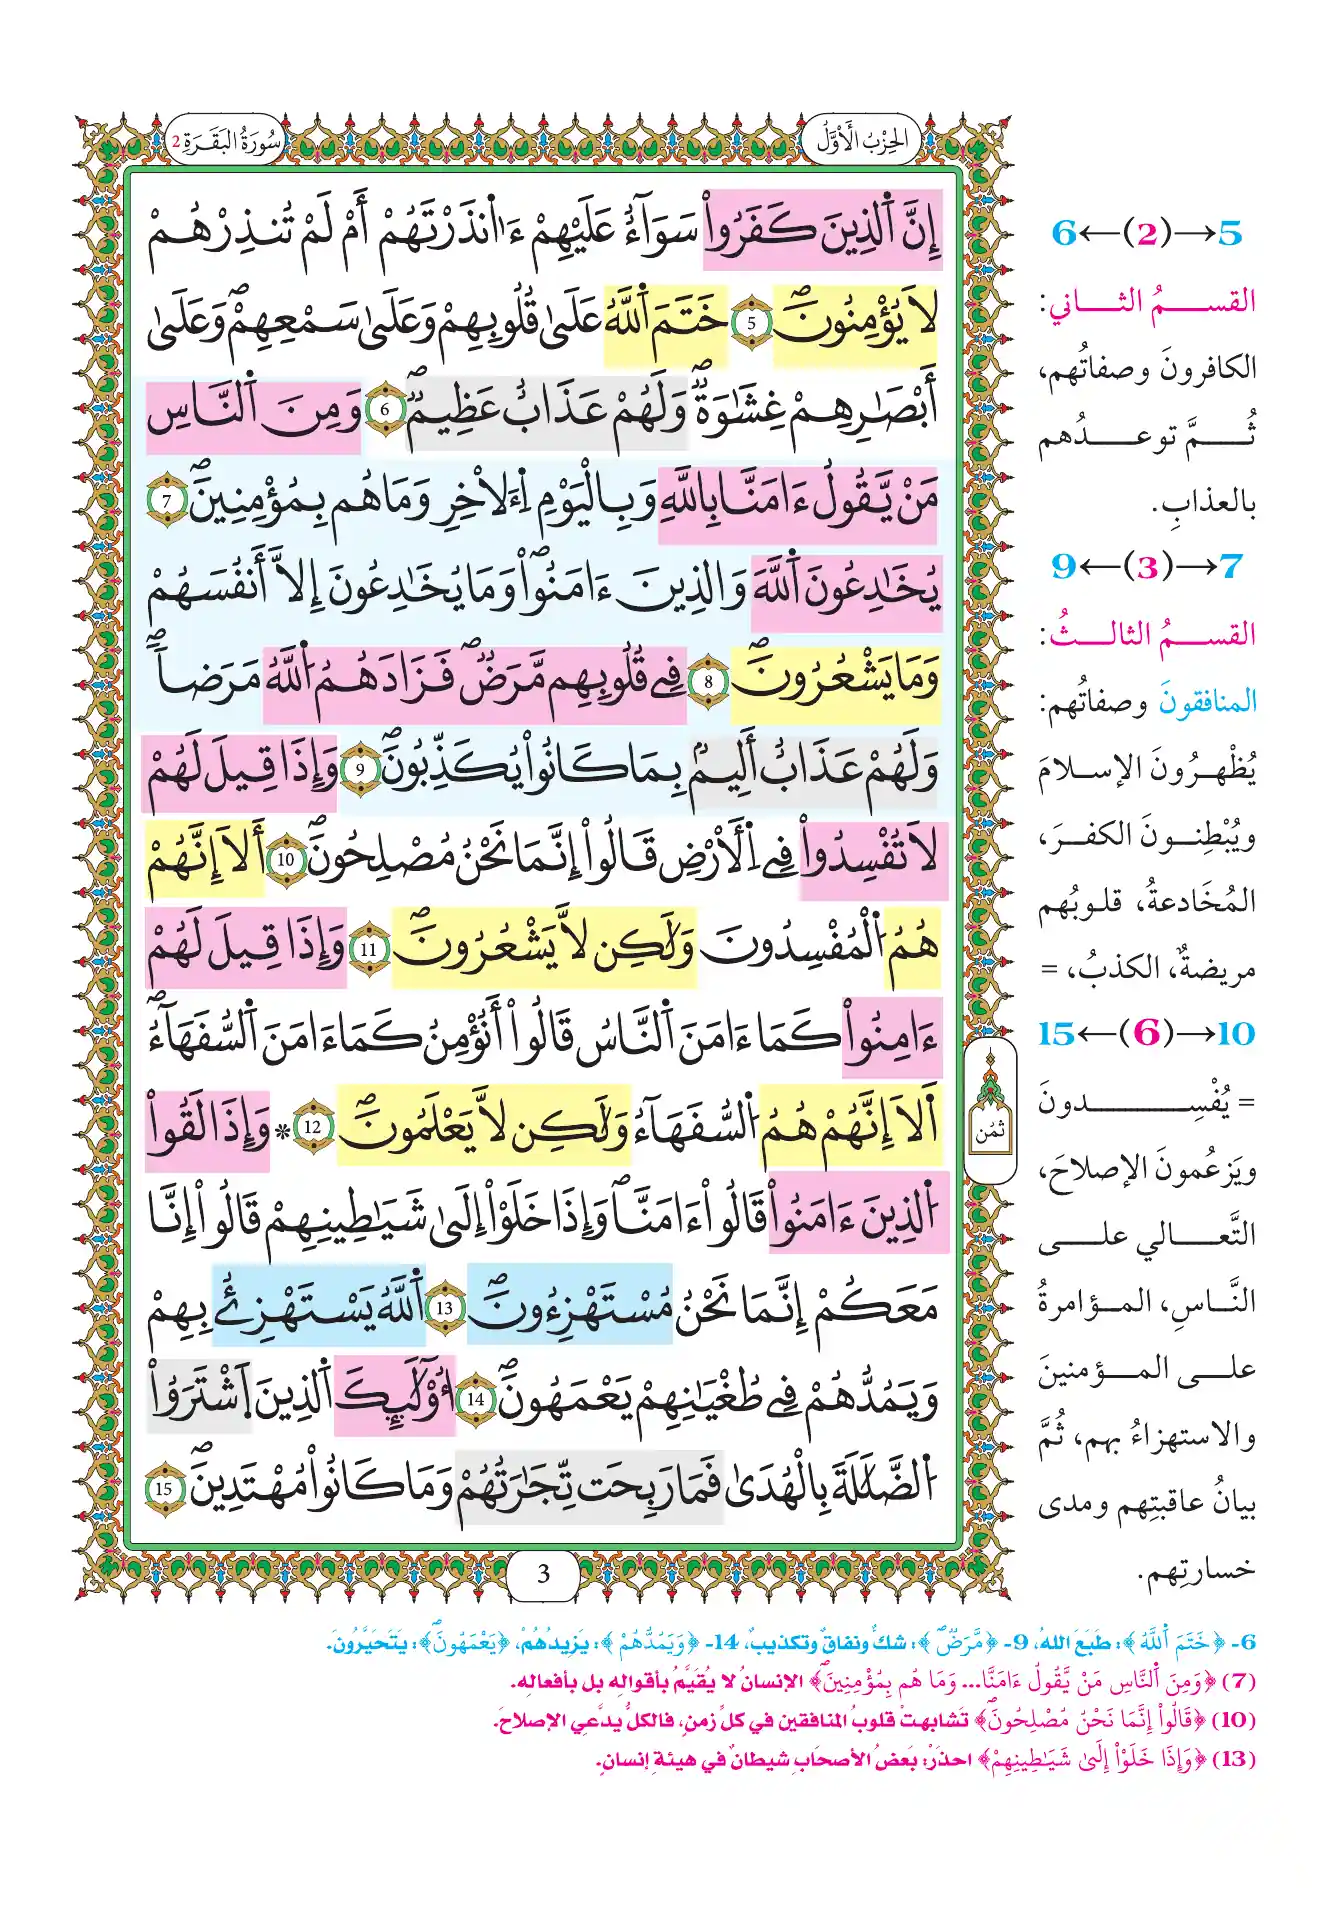 الحِزْبُ الَاوَّلُ
سُورَةُ البَقَرَةِ 2
إِنَّ اَ۬لذِينَ كَفَرُواْ سَوَآءٌ عَلَيْهِمُۥٓ ءَآنذَرْتَهُمُۥٓ أَمْ لَمْ تُنذِرْهُمْ
لَا يُؤْمِنُونَۖ 5 خَتَمَ اَ۬للَّهُ عَلَىٰ قُلُوبِهِمْ وَعَلَىٰ سَمْعِهِمْۖ وَعَلَىٰ
أَبْصَٰرِهِمْ غِشَٰوَةٞۖ وَلَهُمْ عَذَابٌ عَظِيمٞۖ 6 وَمِنَ اَ۬لنَّاسِ
مَنْ يَّقُولُ ءَامَنَّا بِاللَّهِ وَبِالْيَوْمِ اِ۬لَاخِرِ وَمَا هُم بِمُؤْمِنِينَۖ 7
يُخَٰدِعُونَ اَ۬للَّهَ وَالذِينَ ءَامَنُواْۖ وَمَا يُخَٰدِعُونَ إِلَّآ أَنفُسَهُمْ
وَمَا يَشْعُرُونَۖ 8 فِے قُلُوبِهِم مَّرَضٞۖ فَزَادَهُمُ اُ۬للَّهُ مَرَضاٗۖ
وَلَهُمْ عَذَابٌ أَلِيمُۢ بِمَا كَانُواْ يُكَذِّبُونَۖ 9 وَإِذَا قِيلَ لَهُمْ
لَا تُفْسِدُواْ فِے اِ۬لَارْضِ قَالُوٓاْ إِنَّمَا نَحْنُ مُصْلِحُونَۖ 10 أَلَآ إِنَّهُمْ
هُمُ اُ۬لْمُفْسِدُونَ وَلَٰكِن لَّا يَشْعُرُونَۖ 11 وَإِذَا قِيلَ لَهُمُۥٓ
ءَامِنُواْ كَمَآ ءَامَنَ اَ۬لنَّاسُ قَالُوٓاْ أَنُؤْمِنُ كَمَآ ءَامَنَ اَ۬لسُّفَهَآءُۖ
أَلَآ إِنَّهُمْ هُمُ اُ۬لسُّفَهَآءُ وَلَٰكِن لَّا يَعْلَمُونَۖ 12 * وَإِذَا لَقُواْ
اُ۬لذِينَ ءَامَنُواْ قَالُوٓاْ ءَامَنَّاۖ وَإِذَا خَلَوِاْ اِلَىٰ شَيَٰطِينِهِمْ قَالُوٓاْ إِنَّا
مَعَكُمُۥٓ إِنَّمَا نَحْنُ مُسْتَهْزِءُونَۖ 13 اَ۬للَّهُ يَسْتَهْزِئُ بِهِمْ
وَيَمُدُّهُمْ فِے طُغْيَٰنِهِمْ يَعْمَهُونَۖ 14 أُوْلَٰٓئِكَ اَ۬لذِينَ اَ۪شْتَرَوُاْ
اُ۬لضَّلَٰلَةَ بِالْهُدَىٰ فَمَا رَبِحَت تِّجَٰرَتُهُمْ وَمَا كَانُواْ مُهْتَدِينَۖ 15
ثمُن
3
5→(2)←6
القسمُ الثاني:
الكافرونَ وصفاتُهم،
ثُمَّ توعدُهم
بالعذابِ.
7→(3)←9
القسمُ الثالثُ:
المنافقونَ وصفاتُهم:
يُظْهِرُونَ الإسلامَ
ويُبْطِنونَ الكفرَ،
المُخَادعةُ، قلوبُهم
مريضةٌ، الكذبُ، =
10→(6)←15
= يُفْسِدونَ
ويَزعُمونَ الإصلاحَ،
التَّعالي على
النَّاسِ، المؤامرةُ
على المؤمنينَ
والاستهزاءُ بهم، ثُمَّ
بيانُ عاقبتِهم ومدى
خسارتِهم.
6- ﴿خَتَمَ اَ۬للَّهُ﴾: طَبَعَ اللهُ، 9- ﴿مَّرَضٞۖ﴾: شكٌ ونفاقٌ وتكذيبٌ، 14- ﴿وَيَمُدُّهُمْ﴾: يَزِيدُهُمْ، ﴿يَعْمَهُونَۖ﴾: يَتَحَيَّرُونَ.
(7) ﴿وَمِنَ اَ۬لنَّاسِ مَنْ يَّقُولُ ءَامَنَّا... وَمَا هُم بِمُؤْمِنِينَۖ﴾ الإنسانُ لا يُقَيَّمُ بأقوالِه بل بأفعالِه.
(10) ﴿قَالُوٓاْ إِنَّمَا نَحْنُ مُصْلِحُونَۖ﴾ تَشابهتْ قلوبُ المنافقين في كلِّ زمنٍ، فالكلُّ يدَّعي الإصلاحَ.
(13) ﴿وَإِذَا خَلَوِاْ اِلَىٰ شَيَٰطِينِهِمْ﴾ احذَرْ: بَعضُ الأصحَابِ شيطانٌ في هيئةِ إنسانٍ.